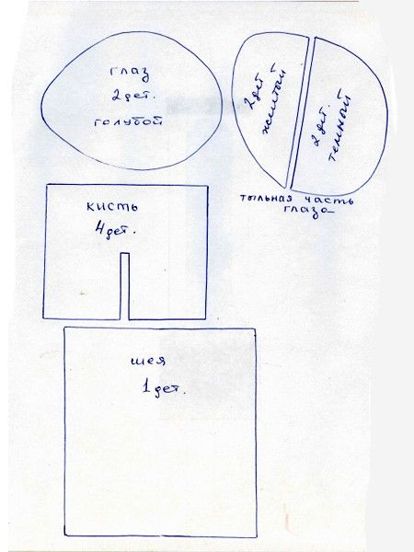 глаз
2 дет.
голубой
2 дет
желтый
2 дет.
темный
тыльная часть
глаза
кисть
4 дет.
шея
1 дет.